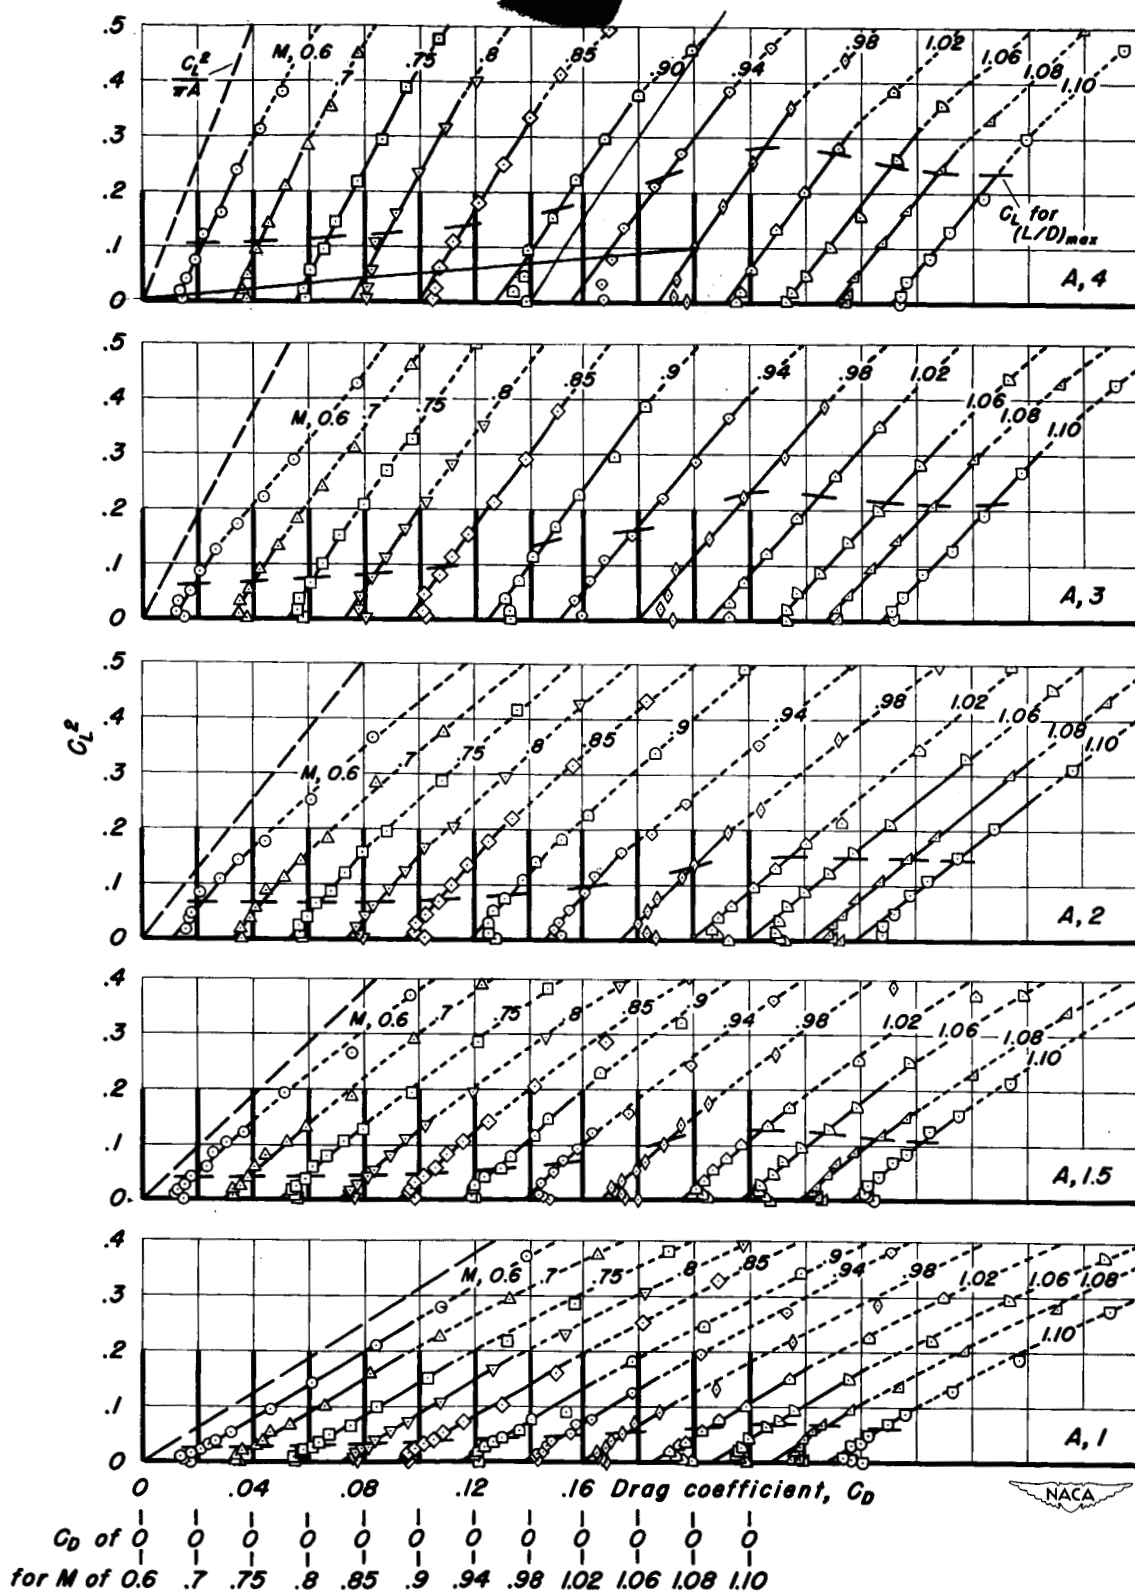 .5
.4
.3
.2
.1
0
C_L²
πA
M, 0.6
.7
.75
.8
.85
.90
.94
.98
1.02
1.06
1.08
1.10
C_L for
(L/D)max
A, 4
.5
.4
.3
.2
.1
0
M, 0.6
.7
.75
.8
.85
.9
.94
.98
1.02
1.06
1.08
1.10
A, 3
C_L²
.5
.4
.3
.2
.1
0
M, 0.6
.7
.75
.8
.85
.9
.94
.98
1.02
1.06
1.08
1.10
A, 2
.4
.3
.2
.1
0
M, 0.6
.7
.75
.8
.85
.9
.94
.98
1.02
1.06
1.08
1.10
A, 1.5
.4
.3
.2
.1
0
M, 0.6
.7
.75
.8
.85
.9
.94
.98
1.02
1.06
1.08
1.10
A, 1
0 .04 .08 .12 .16 Drag coefficient, C_D
NACA
C_D of 0 0 0 0 0 0 0 0 0 0 0 0
for M of 0.6 .7 .75 .8 .85 .9 .94 .98 1.02 1.06 1.08 1.10